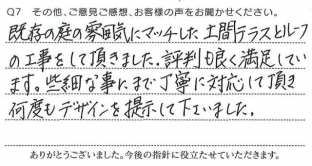 Q7 その他、ご意見ご感想、お客様の声をお聞かせください。
既存の庭の雰気にマッチした土間テラスとルーフ
の工事をして頂きました。評判も良く満足してい
ます。些細な事にまで丁寧に対応して頂き
何度もデザインを提示して下さいました。
ありがとうございました。今後の指針に役立たせていただきます。